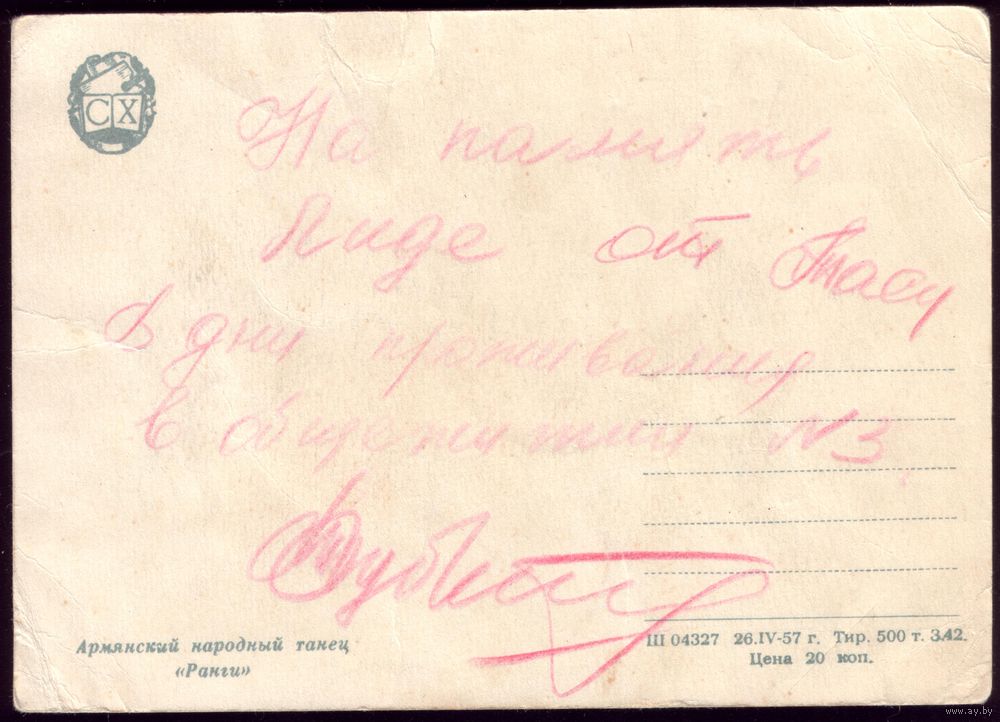 СХ
На память
Лиде от Таси
в дни проживания
в общежитии N3
Армянский народный танец
«Ранги»
Ш 04327 26.IV-57 г. Тир. 500 т. З.42.
Цена 20 коп.
www.ay.by